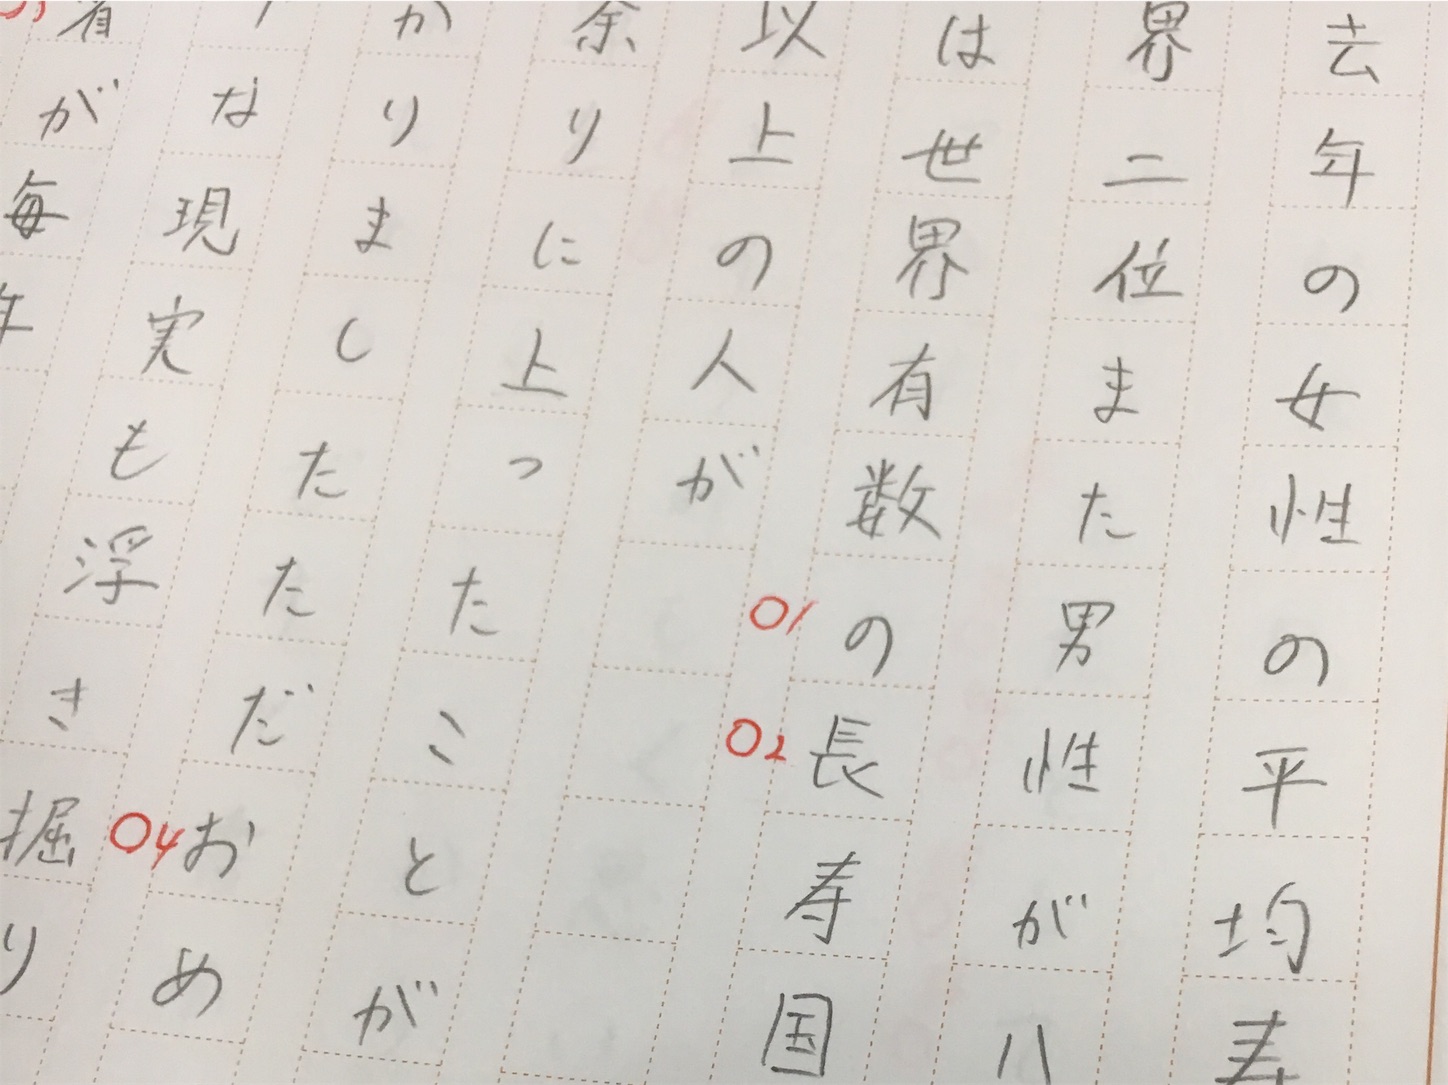 去年の女性の平均寿
界二位また男性が八
は世界有数の長寿国
01
02
以上の人が
余りに上ったことが
かりましたただおめ
04
な現実も浮き掘り
者が毎年